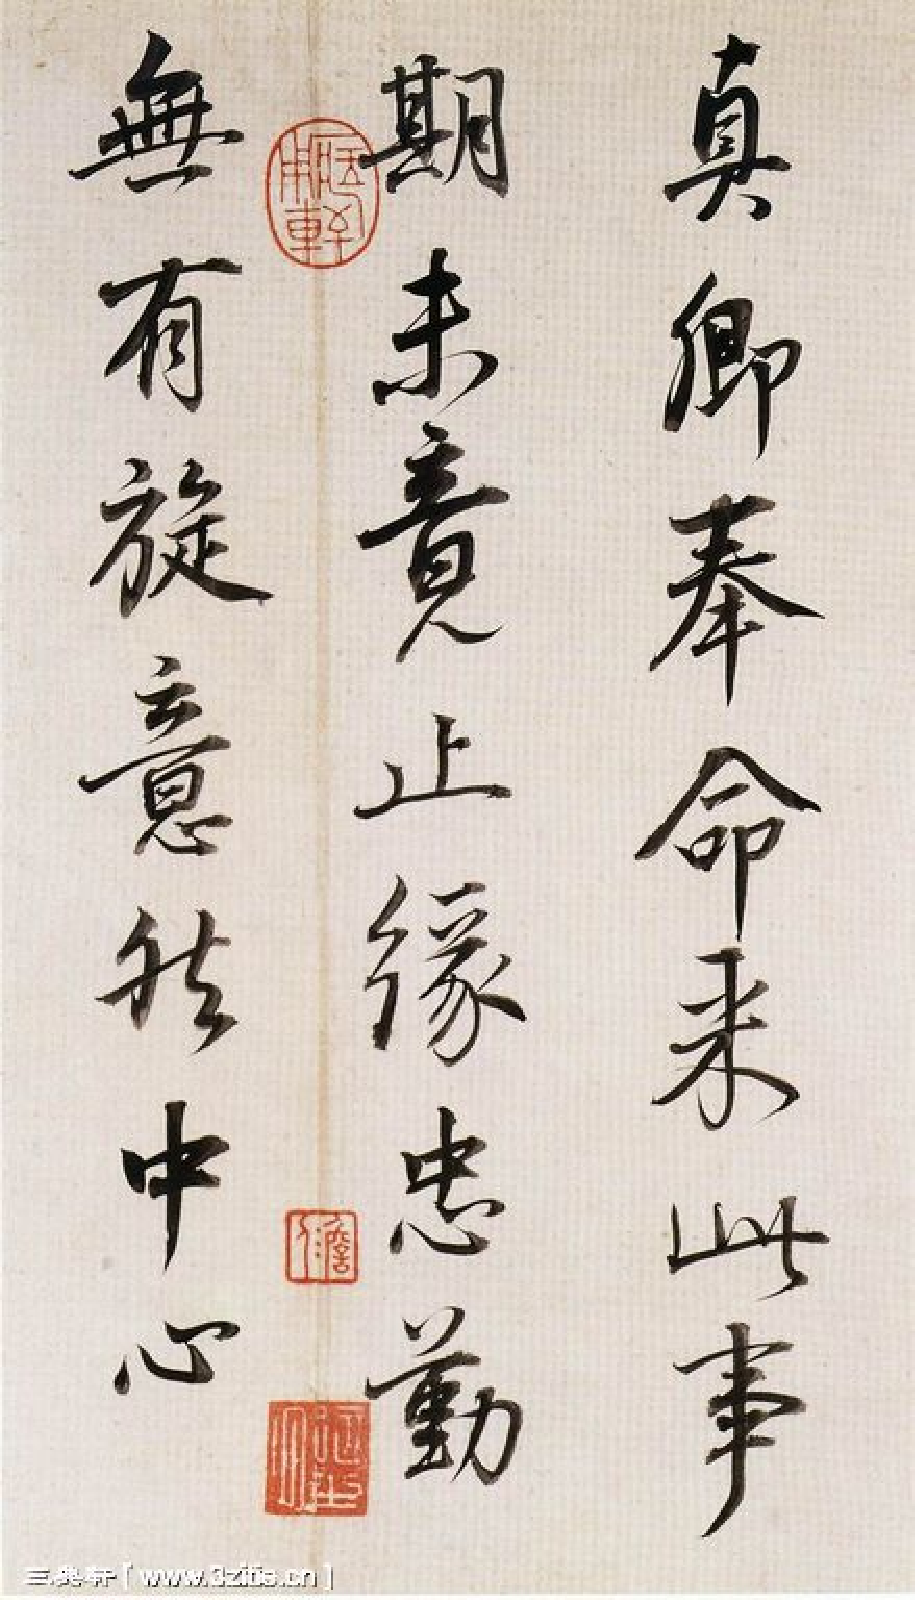 真卿奉命来此事
期未竟止緣忠勤
無有旋意然中心
www.3zitie.cn